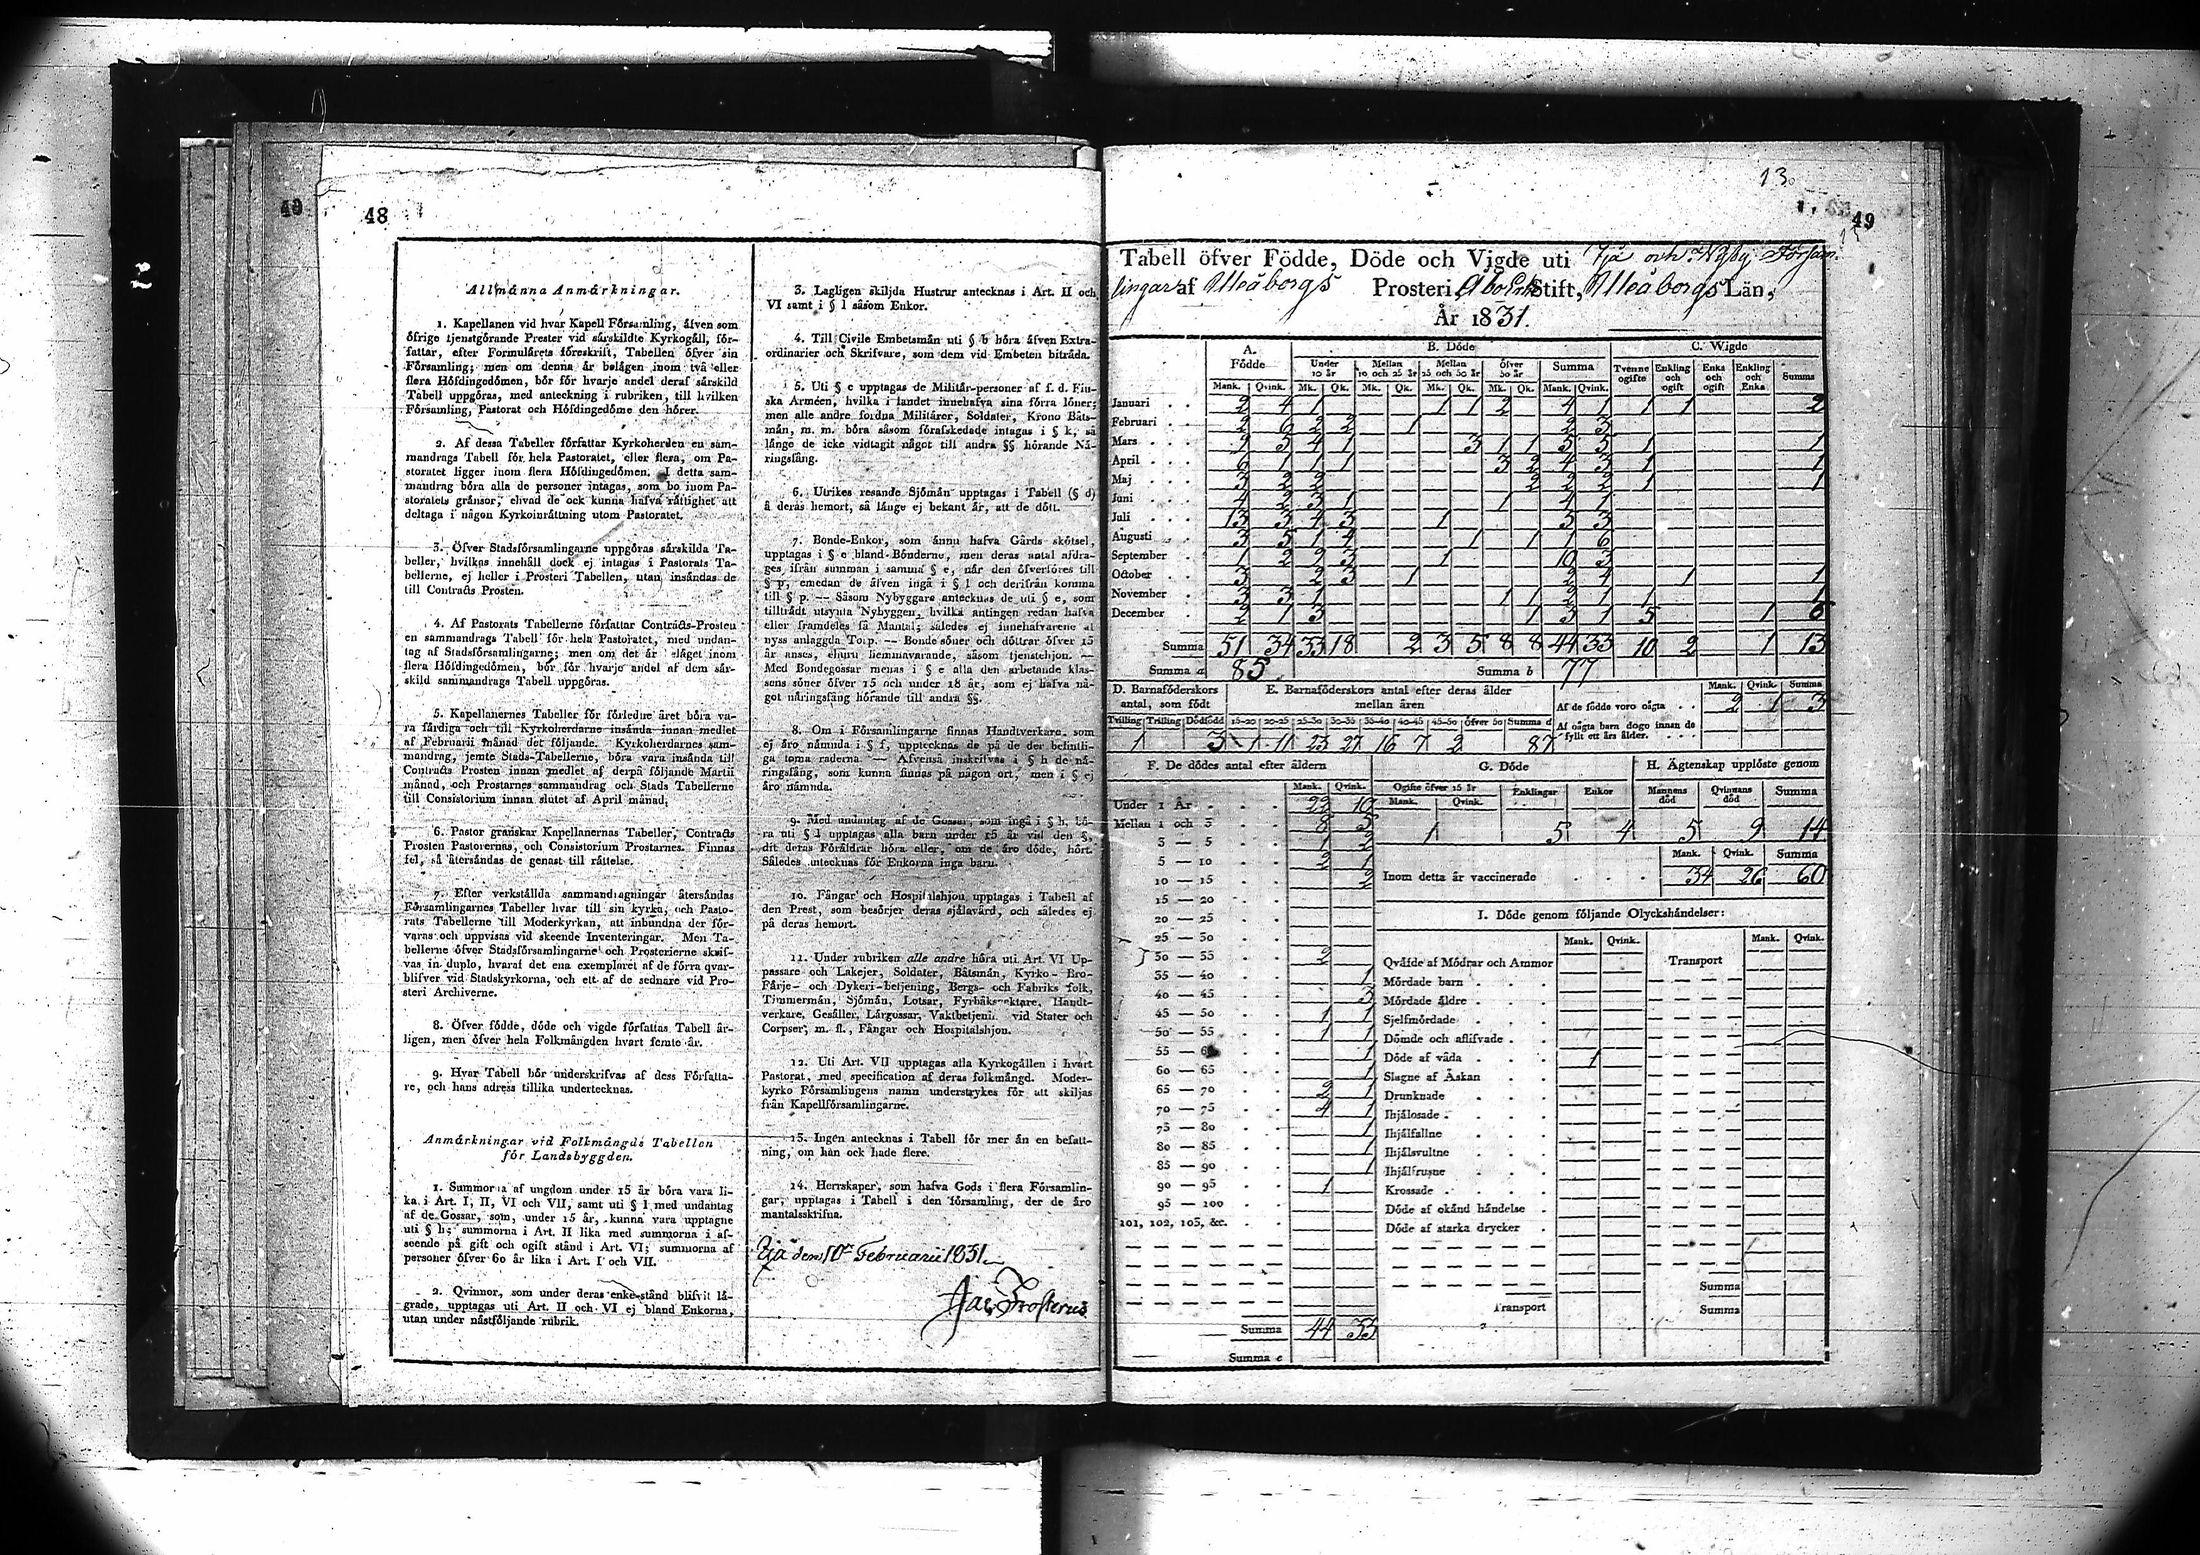 48
Allmänna Anmärkningar.
1. Kapellanen vid hvar Kapell Församling, äfven som
öfrige tjenstgörande Prester vid särskildte Kyrkogäll, för-
fattar, efter Formulärets föreskrift, Tabellen öfver sin
Församling; men om denna är belägen inom två eller
flera Höfdingedömen, bör för hvarje andel deraf särskild
Tabell uppgöras, med anteckning i rubriken, till hvilken
Församling, Pastorat och Höfdingedöme den hörer.
2. Af dessa Tabeller författar Kyrkoherden en sam-
mandrags Tabell för hela Pastoratet, eller flera, om Pa-
storatet ligger inom flera Höfdingedömen. I detta sam-
mandrag böra alla de personer intagas, som bo inom Pa-
storatets gränsor, ehvad de ock kunna hafva rättighet att
deltaga i någon Kyrkoinrättning utom Pastoratet.
3. Öfver Stadsförsamlingarne uppgöras särskilda Ta-
beller, hvilkas innehåll dock ej intages i Pastorats Ta-
bellerne, ej heller i Prosteri Tabellen, utan insändas de
till Contracts Prosten.
4. Af Pastorats Tabellerne författar Contracts-Prosten
en sammandrags Tabell för hela Pastoratet, med undan-
tag af Stadsförsamlingarne; men om det är släget inom
flera Höfdingedömen, bör för hvarje andel af dem sär-
skild sammandrags Tabell uppgöras.
5. Kapellanernes Tabeller för förledne året böra va-
ra färdiga och till Kyrkoherdarne insända innan medlet
af Februarii månad det följande. Kyrkoherdarnes sam-
mandrag, jemte Stads-Tabellerne, böra vara insända till
Contracts Prosten innan medlet af derpå följande Martii
månad, och Prostarnes sammandrag och Stads Tabellerne
till Consistorium innan slutet af April månad.
6. Pastor granskar Kapellanernas Tabeller, Contracts
Prosten Pastorernas, och Consistorium Prostarnes. Finnas
fel, så återsändas de genast till rättelse.
7. Efter verkställda sammandragningar återsändas
Församlingarnes Tabeller hvar till sin kyrka, och Pasto-
rats Tabellerne till Moderkyrkan, att inbundna der för-
varas och uppvisas vid skeende Inventeringar. Men Ta-
bellerne öfver Stadsförsamlingarne och Prosterierne skrif-
vas in duplo, hvaraf det ena exemplaret af de förra qvar-
blifver vid Stadskyrkorna, och ett af de sednare vid Pro-
steri Archiverne.
8. Öfver födde, döde och vigde författas Tabell år-
ligen, men öfver hela Folkmängden hvart femte år.
9. Hvar Tabell bör underskrifvas af dess Författa-
re, och hans adress tillika undertecknas.
Anmärkningar vid Folkmängds Tabellen
för Landsbyggden.
1. Summorna af ungdom under 15 år böra vara li-
ka i Art. I, II, VI och VII, samt uti § l med undantag
af de Gossar, som, under 15 år, kunna vara upptagne
uti § h; summorna i Art. II lika med summorna i af-
seende på gift och ogift stånd i Art. VI; summorna af
personer öfver 60 år lika i Art. I och VII.
2. Qvinnor, som under deras enke-stånd blifvit lå-
grade, upptagas uti Art. II och VI ej bland Enkorna,
utan under nästföljande rubrik.
3. Lagligen skiljda Hustrur antecknas i Art. II och
VI samt i § l såsom Enkor.
4. Till Civile Embetsmän uti § b höra äfven Extra-
ordinarier och Skrifvare, som dem vid Embeten biträda.
5. Uti § c upptagas de Militär-personer af f. d. Fin-
ska Arméen, hvilka i landet innehafva sina förra löner;
men alle andre fordna Militärer, Soldater, Krono Båts-
män, m. m. böra såsom förafskedade intagas i § k, så
länge de icke vidtagit något till andra §§ hörande Nä-
ringsfång.
6. Utrikes resande Sjömän upptagas i Tabell (§ d)
å deras hemort, så länge ej bekant är, att de dött.
7. Bonde-Enkor, som ännu hafva Gårds skötsel,
upptagas i § e bland Bönderne, men deras antal afdra-
ges ifrån summan i samma § e, når den öfverföres till
§ p, emedan de äfven ingå i § l och derifrån komma
till § p. — Såsom Nybyggare antecknas de uti § e, som
tillträdt utsynta Nybyggen, hvilka antingen redan hafva
eller framdeles få Mantal; således ej innehafvarene af
nyss anlaggda Torp. — Bonde söner och döttrar öfver 15
år anses, ehuru hemmavarande, såsom tjenstehjon. —
Med Bondegossar menas i § e alla den arbetande klas-
sens söner öfver 15 och under 18 år, som ej hafva nå-
got näringsfång hörande till andra §§.
8. Om i Församlingarne finnas Handtverkare, som
ej äro nämnda i § f, upptecknas de på de der befintli-
ga toma raderna. — Äfvenså inskrifvas i § h de nä-
ringsfång, som kunna finnas på någon ort, men i § ej
äro nämnda.
9. Med undantag af de Gossar, som ingå i § h, bö-
ra uti § l upptagas alla barn under 15 år vid den §,
dit deras Föräldrar höra eller, om de äro döde, hört.
Således antecknas för Enkorna inga barn.
10. Fångar och Hospitalshjon upptagas i Tabell af
den Prest, som besörjer deras själavård, och således ej
på deras hemort.
11. Under rubriken alle andre höra uti Art. VI Up-
passare och Lakejer, Soldater, Båtsmän, Kyrko- Bro-
Färje- och Dykeri-betjening, Bergs- och Fabriks folk,
Timmermän, Sjömän, Lotsar, Fyrbåksvaktare, Handt-
verkare, Gesäller, Lärgossar, Vaktbetjent vid Stater och
Corpser, m. fl., Fångar och Hospitalshjon.
12. Uti Art. VII upptagas alla Kyrkogällen i hvart
Pastorat, med specification af deras folkmängd. Moder-
kyrko Församlingens namn understrykes för att skiljas
från Kapellförsamlingarne.
13. Ingen antecknas i Tabell för mer än en befatt-
ning, om han ock hade flere.
14. Herrskaper, som hafva Gods i flera Församlin-
gar, upptagas i Tabell i den församling, der de äro
mantalsskrifna.
Ijå den 10de Februarii 1831
Jac. Frosterus
13
49
Tabell öfver Födde, Döde och Vigde uti Ijå och Församlingar af Uleåborgs Prosteri, Åbo Erke Stift, Uleåborgs Län,
År 1831.
A. Födde B. Döde C. Wigde
Under 10 år Mellan 10 och 25 år Mellan 25 och 50 år Öfver 50 år Summa Tvenne ogifte Enkling och ogift Enka och ogift Enkling och Enka Summa
Mank. Qvink. Mk. Qk. Mk. Qk. Mk. Qk. Mk. Qk. Mank. Qvink.
Januari 2 4 1 1 1 2 4 1 1 1 2
Februari 2 6 2 2 1 2 3
Mars 9 5 4 1 3 1 1 5 5 1 1
April 6 1 1 1 3 2 4 3 1 1
Maj 3 2 2 2 2 2 1 1
Juni 4 2 3 1 1 4 1
Juli 13 3 4 3 1 3 3
Augusti 3 5 1 4 1 1 1 6
September 1 2 9 3 1 10 3
October 3 2 3 1 2 4 1 1
November 3 3 1 1 1 2 1 1 1
December 2 1 3 1 3 1 5 1 6
Summa 51 34 33 18 2 3 5 8 8 44 33 10 2 1 13
Summa a 85 Summa b 77
D. Barnaföderskors antal, som födt
Tvilling Trilling Dödfödd
1 3
E. Barnaföderskors antal efter deras ålder mellan åren
15-20 20-25 25-30 30-35 35-40 40-45 45-50 öfver 50 Summa d
1 11 23 27 16 7 2 87
Mank. Qvink. Summa
Af de födde voro oägta 2 1 3
Af oägta barn dogo innan de fyllt ett års ålder.
F. De dödes antal efter åldern
Mank. Qvink.
Under 1 År 22 10
Mellan 1 och 3 8 5
3 — 5 1 2
5 — 10 2 1
10 — 15 2
15 — 20
20 — 25
25 — 30
30 — 35 2
35 — 40 1
40 — 45 3
45 — 50 1 1
50 — 55 1 1
55 — 60 1
60 — 65 1
65 — 70 2 1
70 — 75 4 1
75 — 80 1
80 — 85 1
85 — 90 1
90 — 95 1
95 — 100
101, 102, 103, &c.
Summa 44 33
Summa e
G. Döde
Ogifte öfver 15 år Enklingar Enkor
Mank. Qvink.
1 5 4
H. Ägtenskap upplöste genom
Mannens död Qvinnans död Summa
5 9 14
Mank. Qvink. Summa
Inom detta år vaccinerade 34 26 60
I. Döde genom följande Olyckshändelser:
Mank. Qvink. Transport Mank. Qvink.
Qväfde af Mödrar och Ammor
Mördade barn
Mördade äldre
Sjelfmördade
Dömde och aflifvade
Döde af våda 1
Slagne af Åskan
Drunknade
Ihjälosade
Ihjälfallne
Ihjälsvultne
Ihjälfrusne
Krossade
Döde af okänd händelse
Döde af starka drycker
Summa
Transport Summa